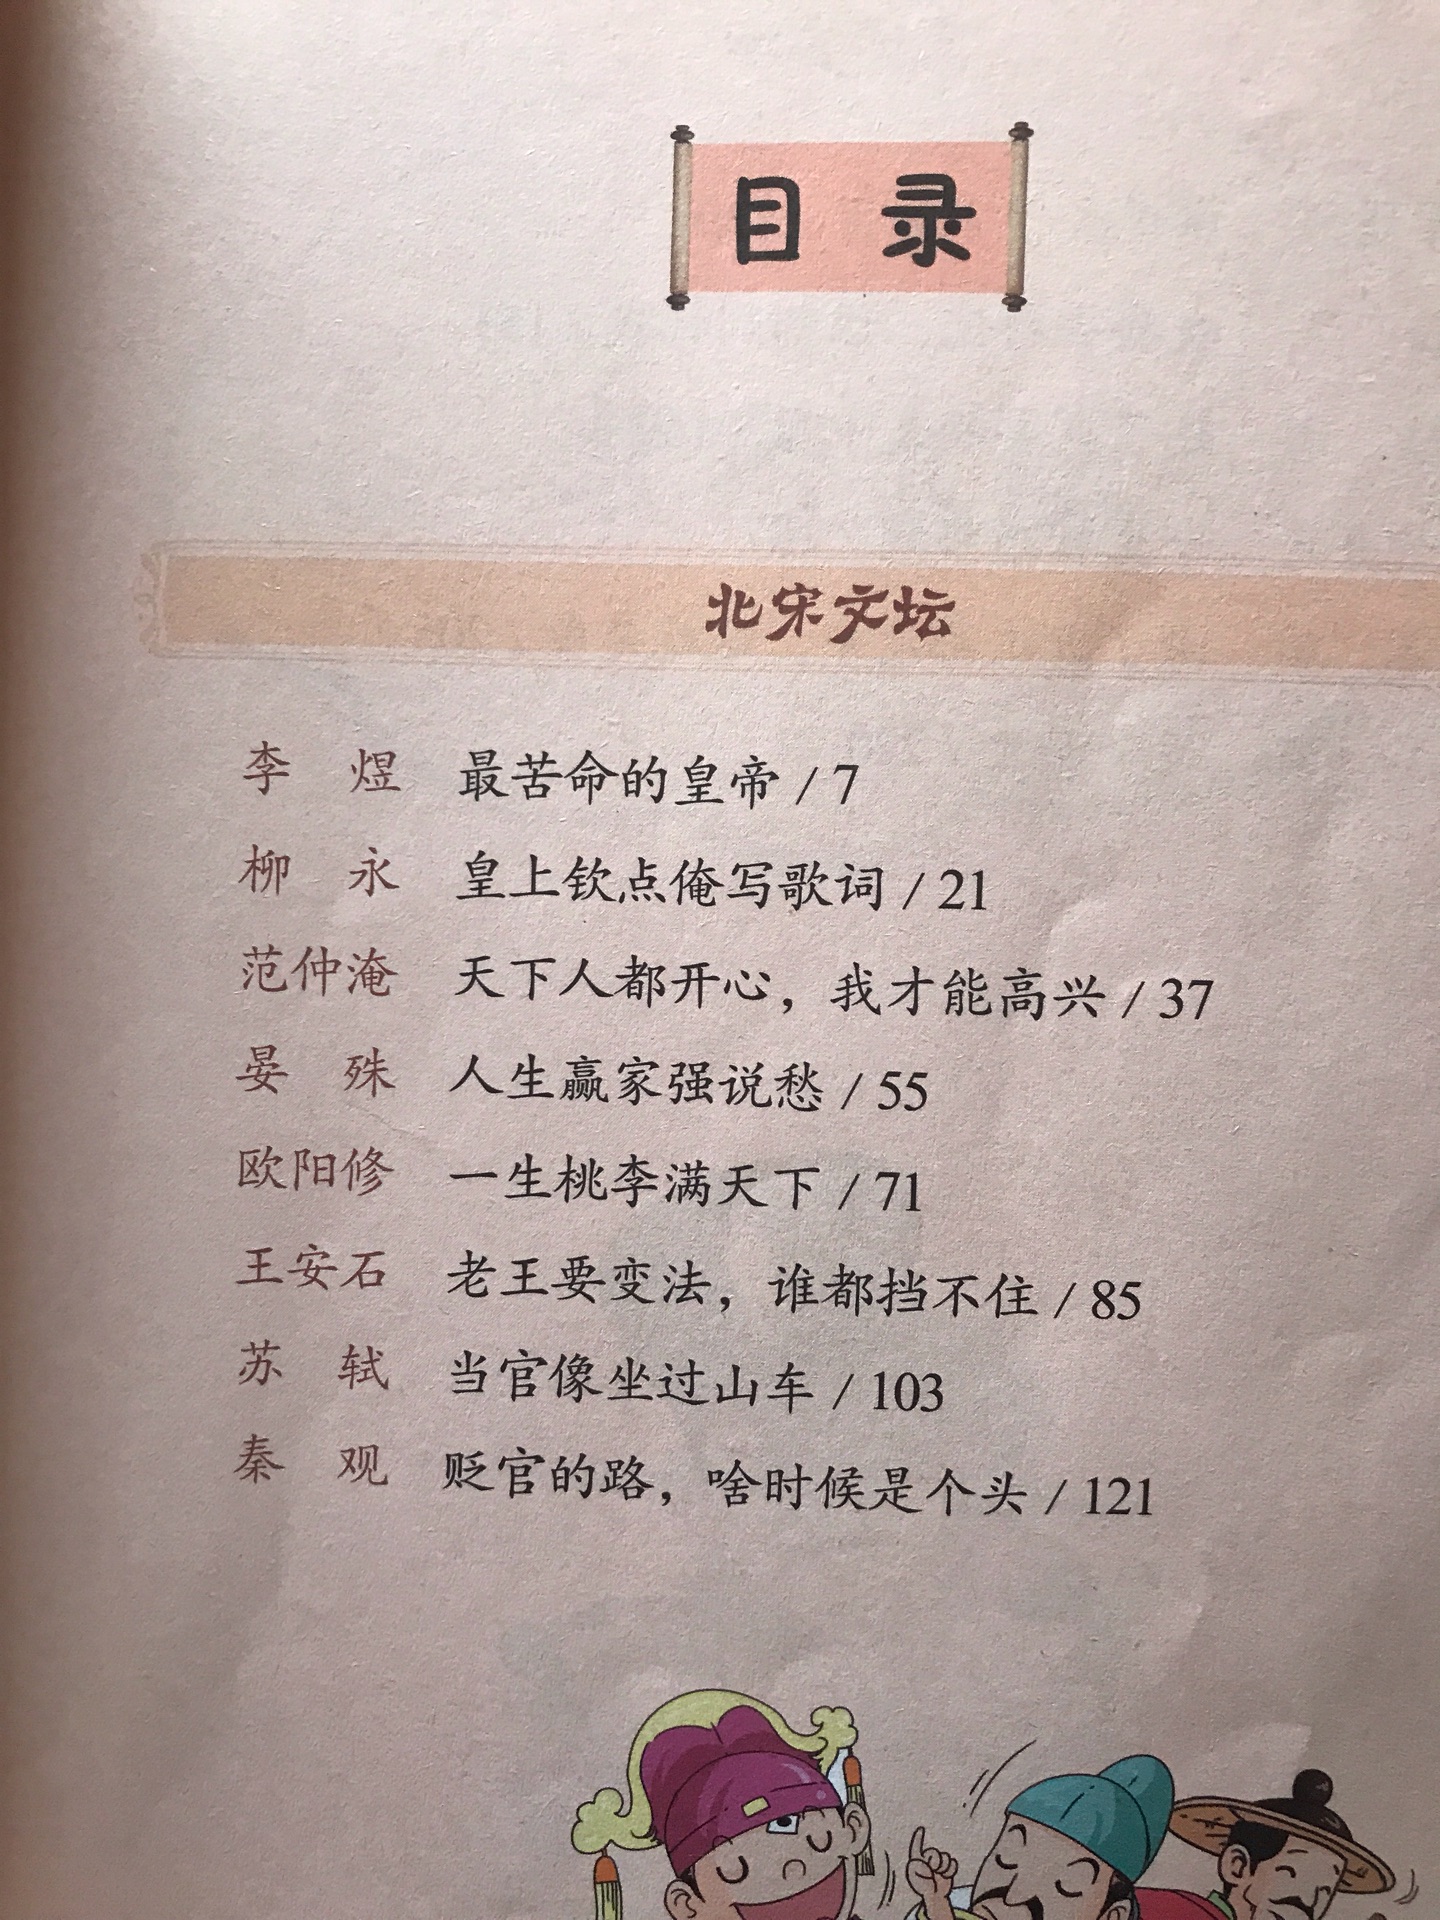 目 录
北宋文坛
李 煜 最苦命的皇帝 / 7
柳 永 皇上钦点俺写歌词 / 21
范仲淹 天下人都开心，我才能高兴 / 37
晏 殊 人生赢家强说愁 / 55
欧阳修 一生桃李满天下 / 71
王安石 老王要变法，谁都挡不住 / 85
苏 轼 当官像坐过山车 / 103
秦 观 贬官的路，啥时候是个头 / 121